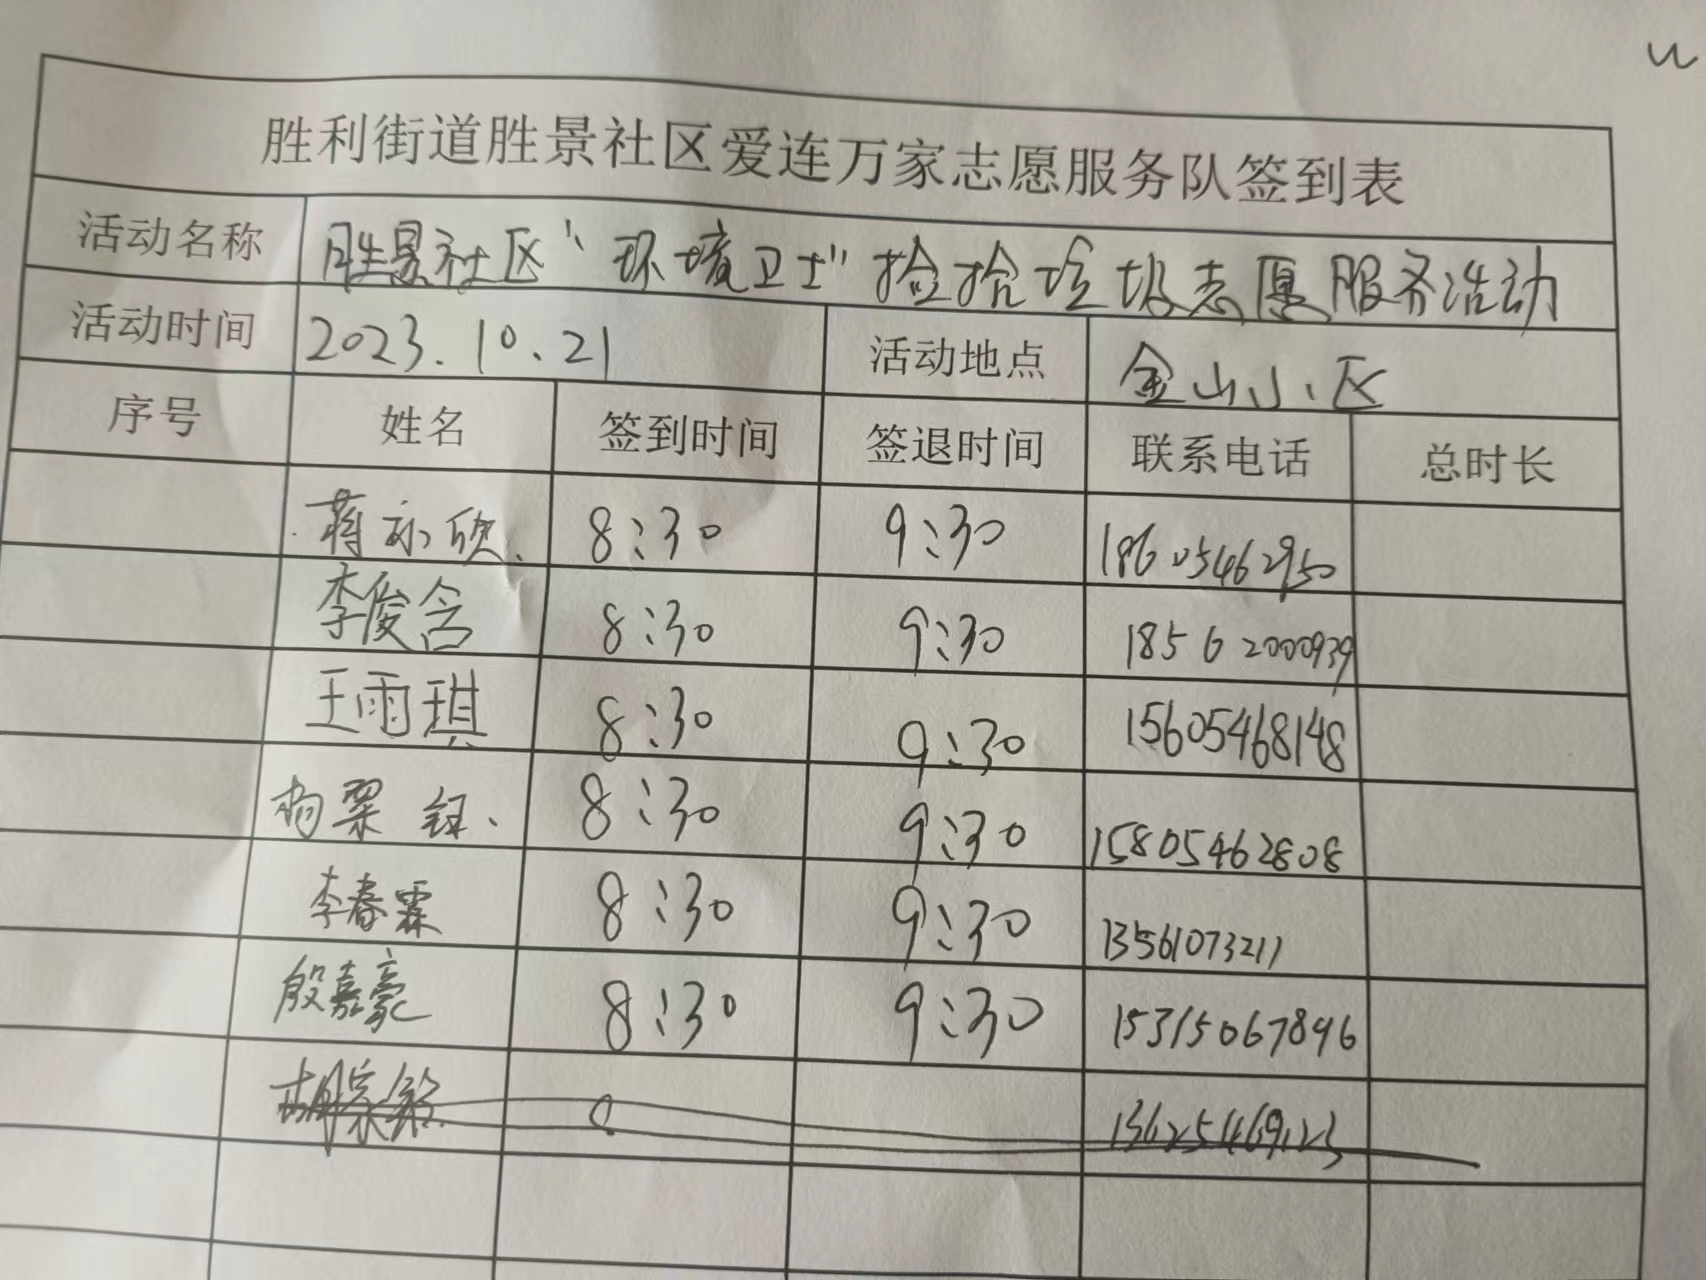 胜利街道胜景社区爱连万家志愿服务队签到表
活动名称 胜景社区“环境卫士”捡拾垃圾志愿服务活动
活动时间 2023.10.21 活动地点 金山小区
序号 姓名 签到时间 签退时间 联系电话 总时长
蒋永欣 8:30 9:30 18605462950
李俊含 8:30 9:30 18562000939
王雨琪 8:30 9:30 15605468148
8:30 9:30 15805462808
李春霖 8:30 9:30 13561073211
殷嘉豪 8:30 9:30 15315067896